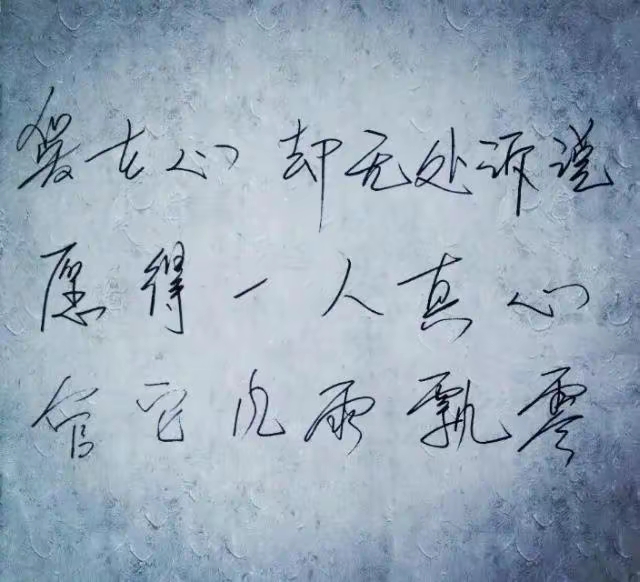 爱在心 却无处诉说
愿得一人真心
管它风雨飘零